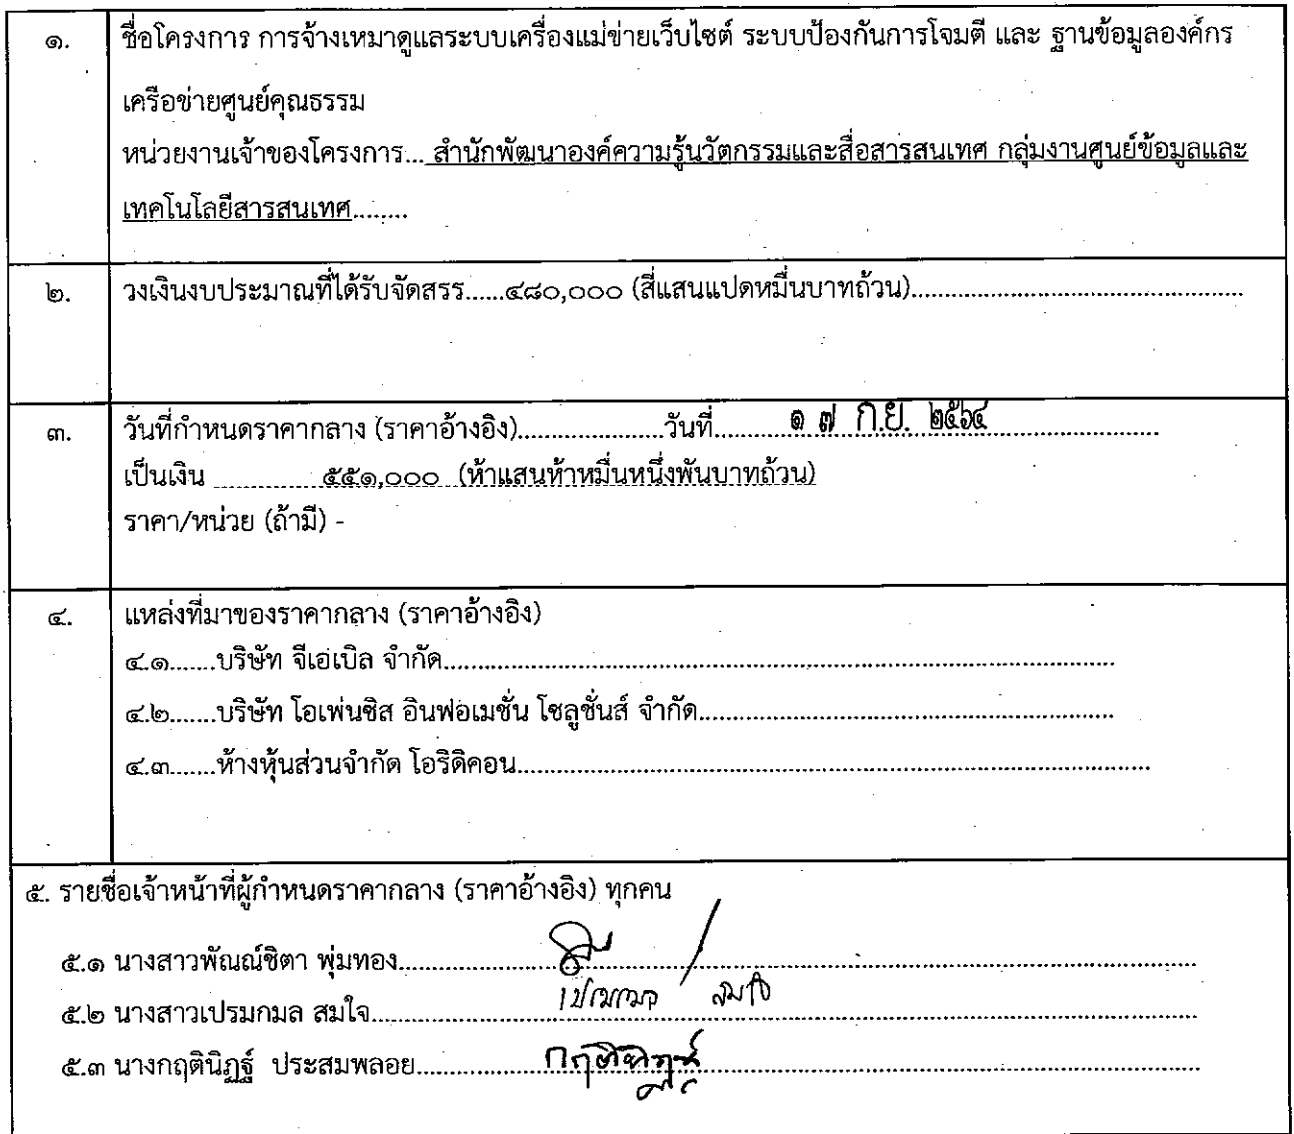 ๑. ชื่อโครงการ การจ้างเหมาดูแลระบบเครื่องแม่ข่ายเว็บไซต์ ระบบป้องกันการโจมตี และ ฐานข้อมูลองค์กร
เครือข่ายศูนย์คุณธรรม
หน่วยงานเจ้าของโครงการ... สำนักพัฒนาองค์ความรู้นวัตกรรมและสื่อสารสนเทศ กลุ่มงานศูนย์ข้อมูลและ
เทคโนโลยีสารสนเทศ........
๒. วงเงินงบประมาณที่ได้รับจัดสรร......๔๘๐,๐๐๐ (สี่แสนแปดหมื่นบาทถ้วน)................................................
๓. วันที่กำหนดราคากลาง (ราคาอ้างอิง)......................วันที่........... ๑ ๗ ก.ย. ๒๕๖๔ ..........................
เป็นเงิน ................๕๕๑,๐๐๐ (ห้าแสนห้าหมื่นหนึ่งพันบาทถ้วน)
ราคา/หน่วย (ถ้ามี) -
๔. แหล่งที่มาของราคากลาง (ราคาอ้างอิง)
๔.๑.......บริษัท จีเอเบิล จำกัด....................................................................................................
๔.๒.......บริษัท โอเพ่นซิส อินฟอเมชั่น โซลูชั่นส์ จำกัด...............................................................
๔.๓.......ห้างหุ้นส่วนจำกัด โอริดิคอน...............................................................................................
๕. รายชื่อเจ้าหน้าที่ผู้กำหนดราคากลาง (ราคาอ้างอิง) ทุกคน
๕.๑ นางสาวพัณณ์ชิตา พุ่มทอง........................................................................................................................
๕.๒ นางสาวเปรมกมล สมใจ.......... เปรมกมล สมใจ ..........................................................................
๕.๓ นางกฤตินิฏฐ์ ประสมพลอย....................................................................................................................